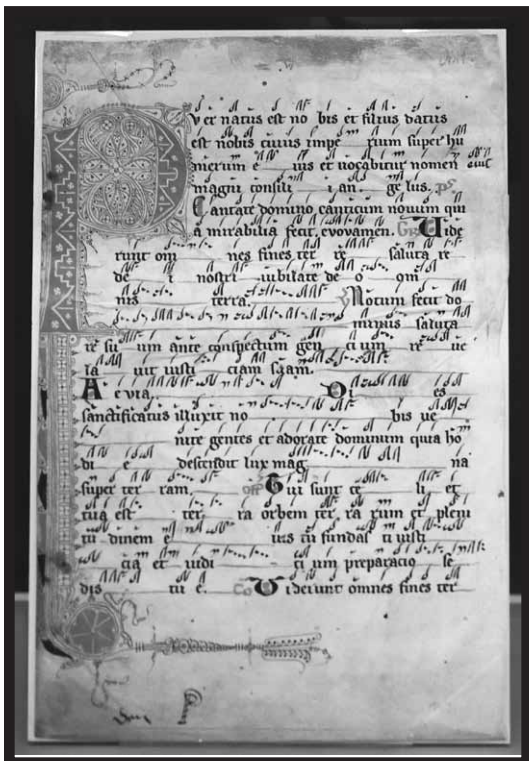 Puer natus est no bis et filius datus
est nobis cuius impe rium super hu
merum e ius et vocabitur nomen eius
magni consili i an ge lus. ps.
Cantate domino canticum novum qui
a mirabilia fecit. evovamen. Gr. Vide
runt om nes fines ter re saluta re
de i nostri iubilate de o om
nis terra. Notum fecit do
minus saluta
re su um ante conspectum gen ci um re ve
la vit iusti ciam suam.
A e via. Di es
sanctificatus illuxit no bis ve
nite gentes et adorate dominum quia ho
di e descendit lux mag na
super ter ram. off Tui sunt ce li et
tua est ter ra orbem ter ra rum et pleni
tu dinem e ius tu fundas ti iusti
cia et iudi ci um preparacio se
dis tu e. Co Viderunt omnes fines ter